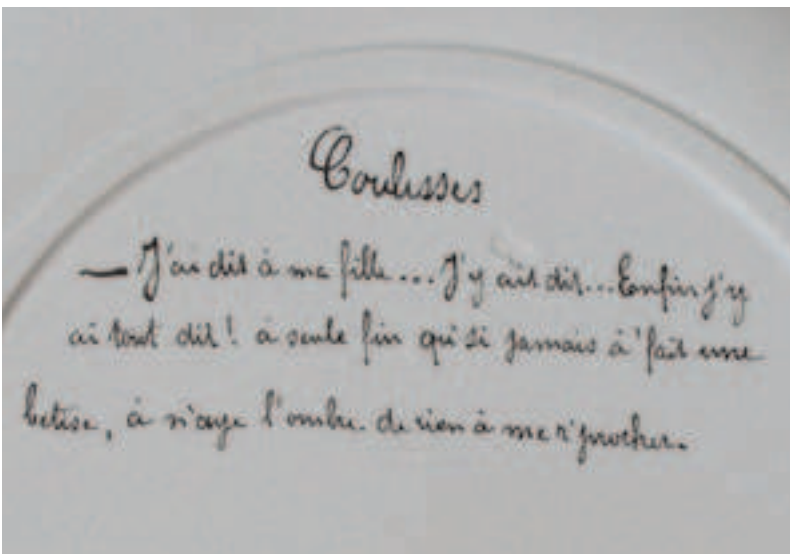 Coulisses
— J'ai dit à ma fille... J'y ait dit... Enfin j'y
ai tout dit! à seule fin qu'si jamais à'fait une
betise, à n'aye l'ombre de rien à me r'procher.